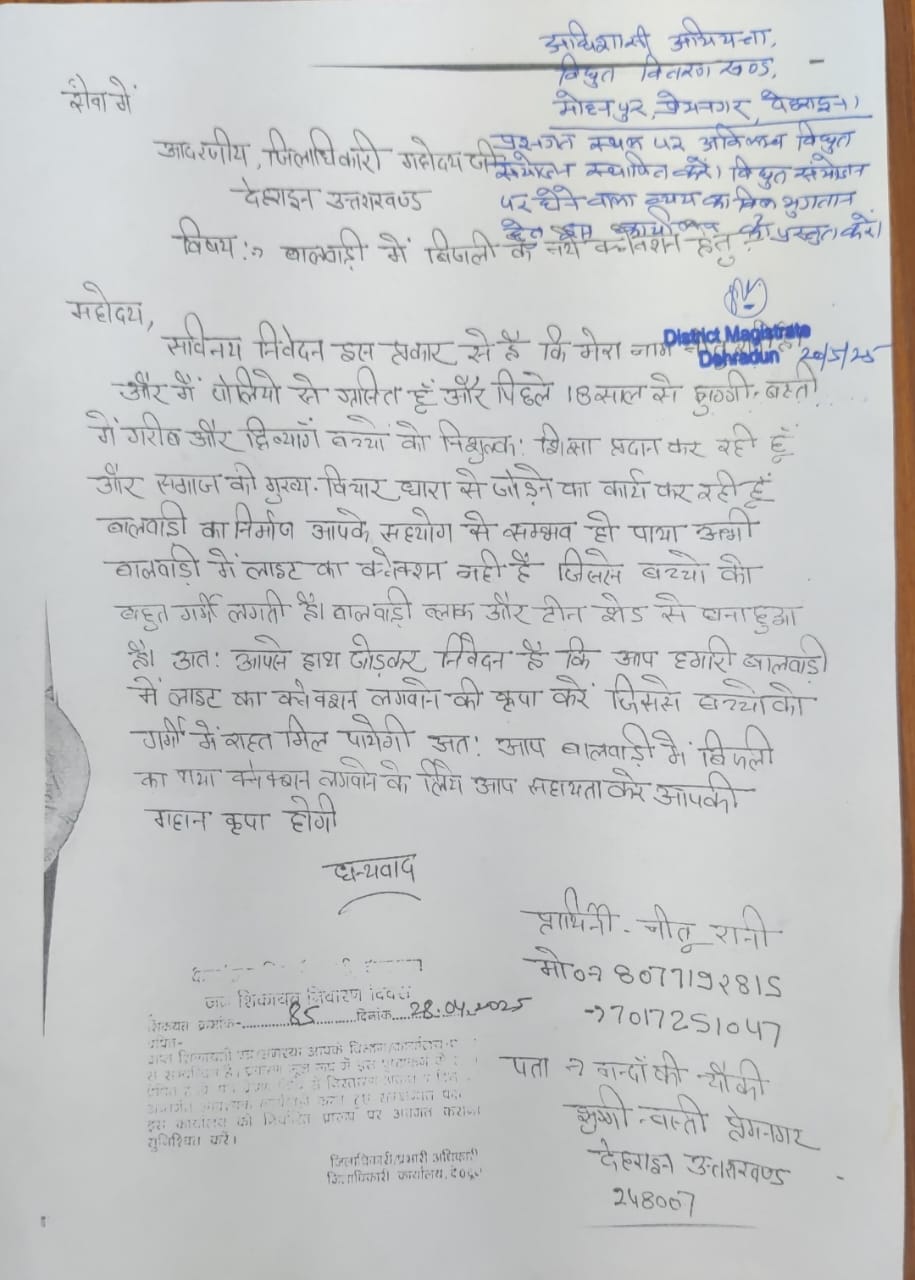 अधिशासी अभियन्ता,
विद्युत वितरण खण्ड,
मोहनपुर, प्रेमनगर, देहरादून।
प्रश्नगत स्थल पर अविलम्ब विद्युत
संयोजन स्थापित करें। विद्युत संयोजन
पर होने वाला व्यय का बिल भुगतान
हेतु इस कार्यालय को प्रस्तुत करें।
District Magistrate
Dehradun 20/5/25
सेवा में
आदरणीय, जिलाधिकारी महोदय जी
देहरादून उत्तराखण्ड
विषय :-> बालवाड़ी में बिजली के नये कनेक्शन हेतु
महोदय,
सविनय निवेदन इस प्रकार से है कि मेरा नाम
और मैं पोलियो से ग्रसित हूँ और पिछले 18 साल से झुग्गी-बस्ती
में गरीब और दिव्यांग बच्चों को निशुल्क: शिक्षा प्रदान कर रही हूँ
और समाज की मुख्य-विचार धारा से जोड़ने का कार्य कर रही हूँ
बालवाडी का निर्माण आपके सहयोग से सम्भव हो पाया अभी
बालवाड़ी में लाइट का कनेक्शन नही है जिससे बच्चो को
बहुत गर्मी लगती है। बालवाड़ी ब्लाक और टीन शेड से बना हुआ
है। अत: आपसे हाथ जोड़कर निवेदन है कि आप हमारी बालवाड़ी
में लाइट का कनेक्शन लगवाने की कृपा करें जिससे बच्चों को
गर्मी में राहत मिल पायेगी अत: आप बालवाड़ी में बिजली
का नया कनेक्शन लगवाने के लिये आप सहायता करे आपकी
महान कृपा होगी
धन्यवाद
प्रार्थिनी - नीतू रानी
मो० -> 8077192815
-> 7017251047
पता -> नन्दा की चौकी
झुग्गी बस्ती प्रेमनगर
देहरादून उत्तराखण्ड
248007
जन शिकायत निवारण दिवस
शिकायत क्रमांक- 85 दिनांक 28.04.2025
इस कार्यालय को निर्धारित प्रारूप पर अवगत कराना
सुनिश्चित करें।
जिलाधिकारी/प्रभारी अधिकारी
जिलाधिकारी कार्यालय, दे०दून